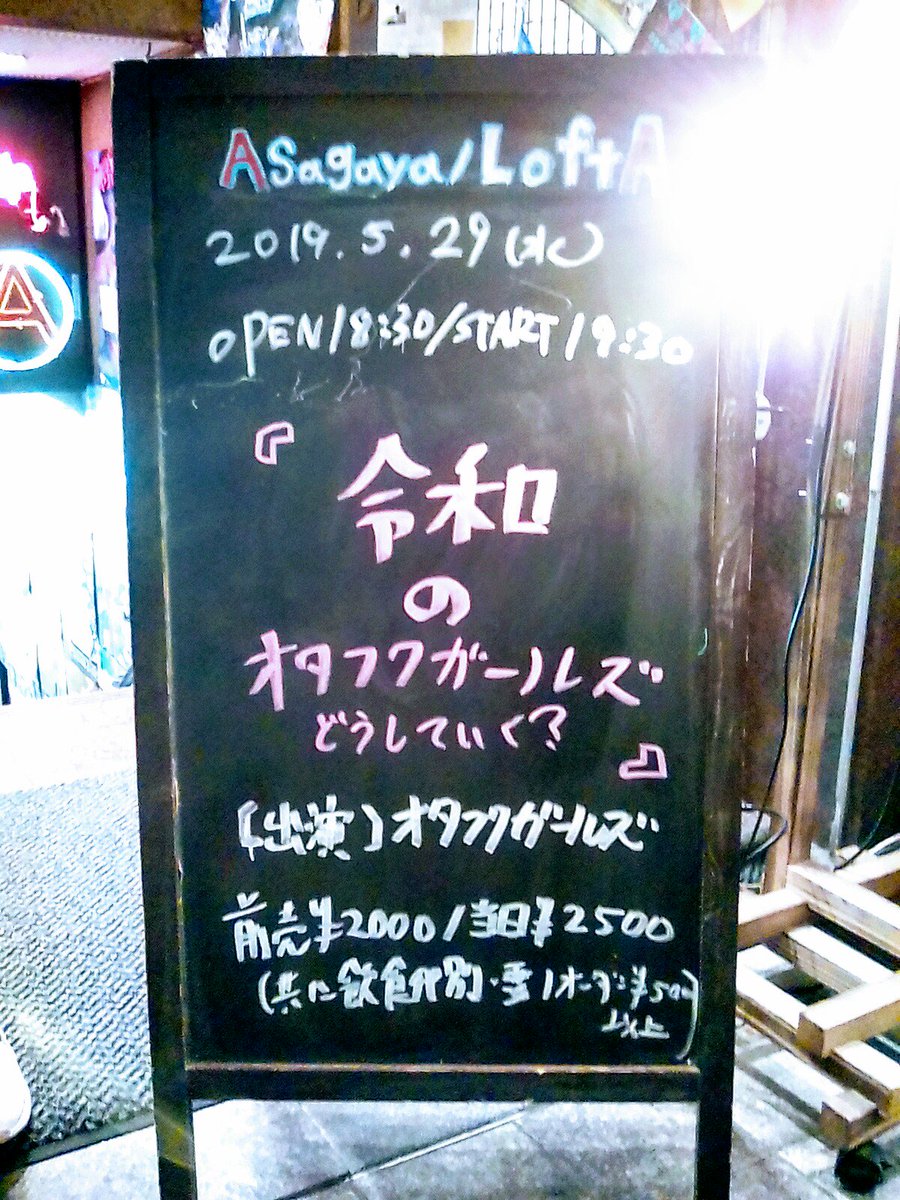 Asagaya/LoftA
2019.5.29(水)
OPEN18:30/START19:30
『
令和
の
オタフクガールズ
どうしていく?
』
〔出演〕オタフクガールズ
前売¥2000/当日¥2500
(共に飲食代別・要1オーダー¥500
以上)